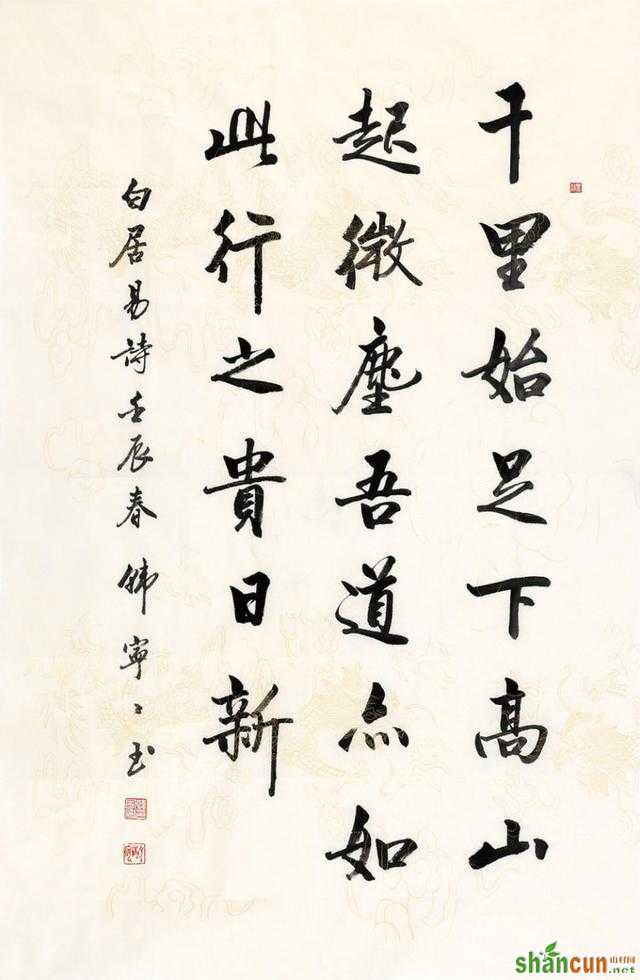 千里始足下高山
起微塵吾道亦如
此行之貴日新
白居易詩壬辰春韩寧寧书
shancun
山村网
.net